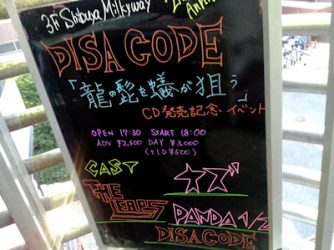 3F Shibuya Milkyway
DISACODE
「龍の髭を蟻が狙う」
CD発売記念イベント
OPEN 17:30 START 18:00
ADV ¥2,500 DAY ¥3,000
(+1D ¥500)
CAST
THE LEAPS
PANDA 1/2
DISACODE